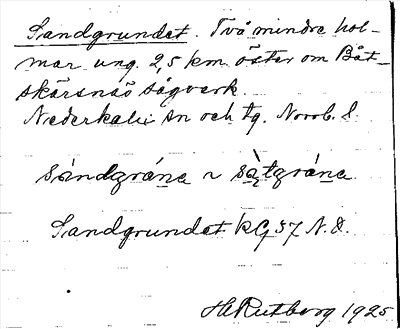 Sandgrundet. Två mindre hol-
mar ung. 2,5 km öster om Båt-
skärsnäs sågverk.
Nederkalix sn och tg. Norrb. l.
Sandgrundet kG 57 N.O.
H Rutberg 1925